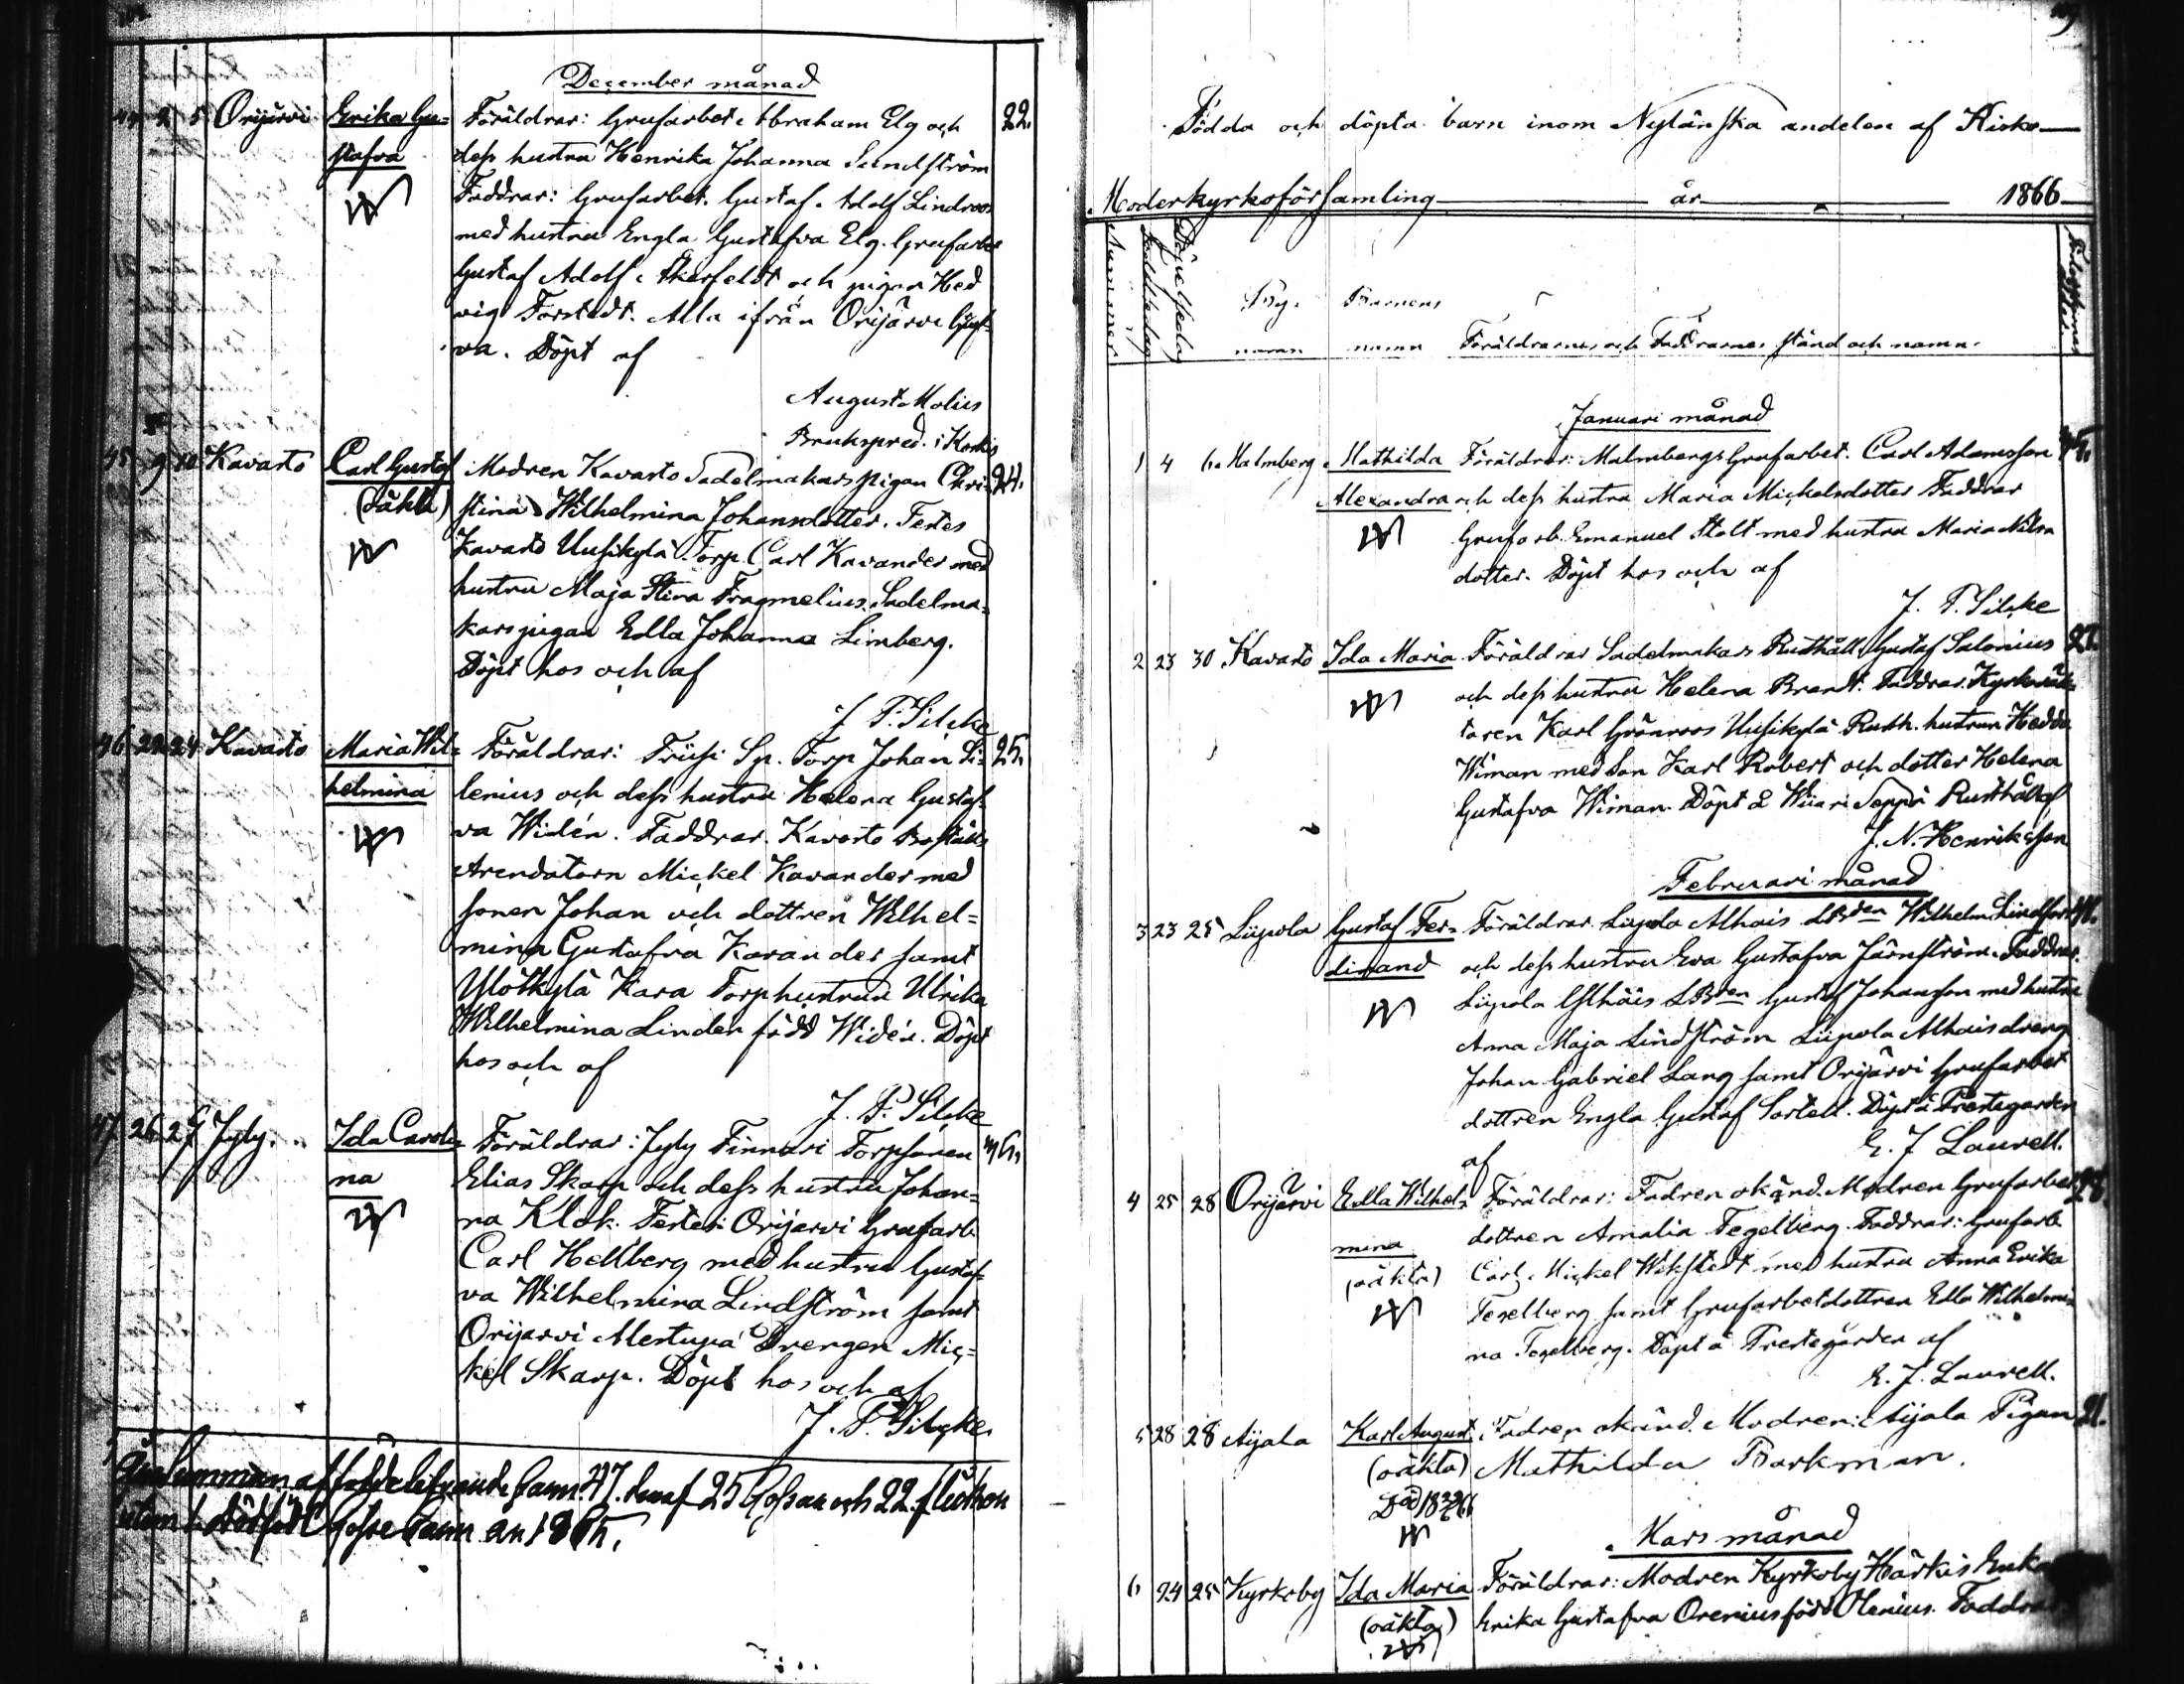 December månad
44 2 5 Orijärvi Erika Gu= Föräldrar: Grufarbet. Abraham Elg och 22.
stafva dess hustru Henrika Johanna Sundström
Faddrar: Grufarbet. Gustaf Adolf Lindroos
med hustru Engla Gustafva Elg. Grufarbet
Gustaf Adolf Åkerfeldt och pigan Hed
vig Forstedt. Alla ifrån Orijärvi Gruf-
va. Döpt af
August Molius
Brukspred. i Koski
45 9 10 Kavasto Carl Gustaf Modren Kavasto Sadelmakars pigan Chri= 24.
(oäkta) stina Wilhelmina Johansdotter. Testes
Kavasto Uusikylä Torp. Carl Kavander med
hustru Maja Stina Fragmelius. Sadelma=
kars pigan Edla Johanna Limberg.
Döpt hos och af
J. F. Silcke
46 22 24 Kavasto Maria Wil= Föräldrar: Torp Johan Si= 25.
helmina lenius och dess hustru Helena Gustaf
va Widén. Faddrar. Kavasto Boställs
Arendatorn Mickel Kavander med
sonen Johan och dottren Wilhel=
mina Gustafva Kavander samt
Ylötkylä Kara Torphustrun Ulrika
Wilhelmina Linder född Widén. Döpt
hos och af
J. F. Silcke
47 26 27 Jyly. Ida Caroli= Föräldrar: Jyly Finnari Torpsonen
na Elias Skarp och dess hustru Johan=
na Klok. Testes: Orijärvi Grufarb.
Carl Hellberg med hustru Gustaf=
va Wilhelmina Lindström samt
Orijarvi Mestupa Drengen Mic=
kel Skarp. Döpt hos och af
J. F. Silcke
47. deraf 25 Gossar och 22 flickor
utom 1 dödfödt Gosse barn år 1865.
Födda och döpta barn inom Nyländska andelen af Kisko
Moderkyrkoförsamling år 1866
Nummer Födelsedag Döpelsedag By. Barnens
namn namn Föräldrarnes och Faddrarnes stånd och namn.
Januari månad
1 4 6 Malmberg Mathilda Föräldrar: Malmbergs Grufarbet. Carl Adamsson
Alexandra och dess hustru Maria Mickelsdotter Faddrar
Grufarb. Emanuel Stolt med hustru Maria Nils
dotter. Döpt hos och af
J. F. Silcke
2 23 30 Kavasto Ida Maria Föräldrar Sadelmakars Rusthåll. Gustaf Salonius 27.
och dess hustru Helena Brandt. Faddrar. Kyrkovak=
taren Karl Grönroos Uusikylä Rusth. hustrun Hedda
Wiman med son Karl Robert och dotter Helena
Gustafva Wiman. Döpt å Wiiari Seppä Rusthåll af
J. N. Henriksson
Februari månad
3 23 25 Liipola Gustaf Fer= Föräldrar Liipola Alhais Wilhelm Lindfors
dinand och dess hustru Eva Gustafva Järnström. Faddrar.
Liipola Alhais Gustaf Johansson med hustru
Anna Maja Lindström Liipola Alhais dreng
Johan Gabriel Lang samt Orijärvi Grufarbet
dottren Engla Gustaf Sortell. Döpt å Prestegården
af E. J. Laurell.
4 25 28 Orijärvi Edla Wilhel= Föräldrar: Fadren okänd. Modren Grufarbet
mina dottren Amalia Tegelberg. Faddrar: Grufarb.
(oäkta) Carl Mickel Wikstedt med hustru Anna Erika
Tegelberg samt Grufarbetdottren Edla Wilhelmi
na Tegelberg. Döpt å Prestegården af
E. J. Laurell.
5 28 28 Aijala Karl August Fadren okänd. Modren: Aijala Pigan 21.
(oäkta) Mathilda Barkman.
Mars månad
6 24 25 Kyrkoby Ida Maria Föräldrar: Modren Kyrkoby Härkis Enka
(oäkta) Erika Gustafva Orenius född Olenius. Faddrar